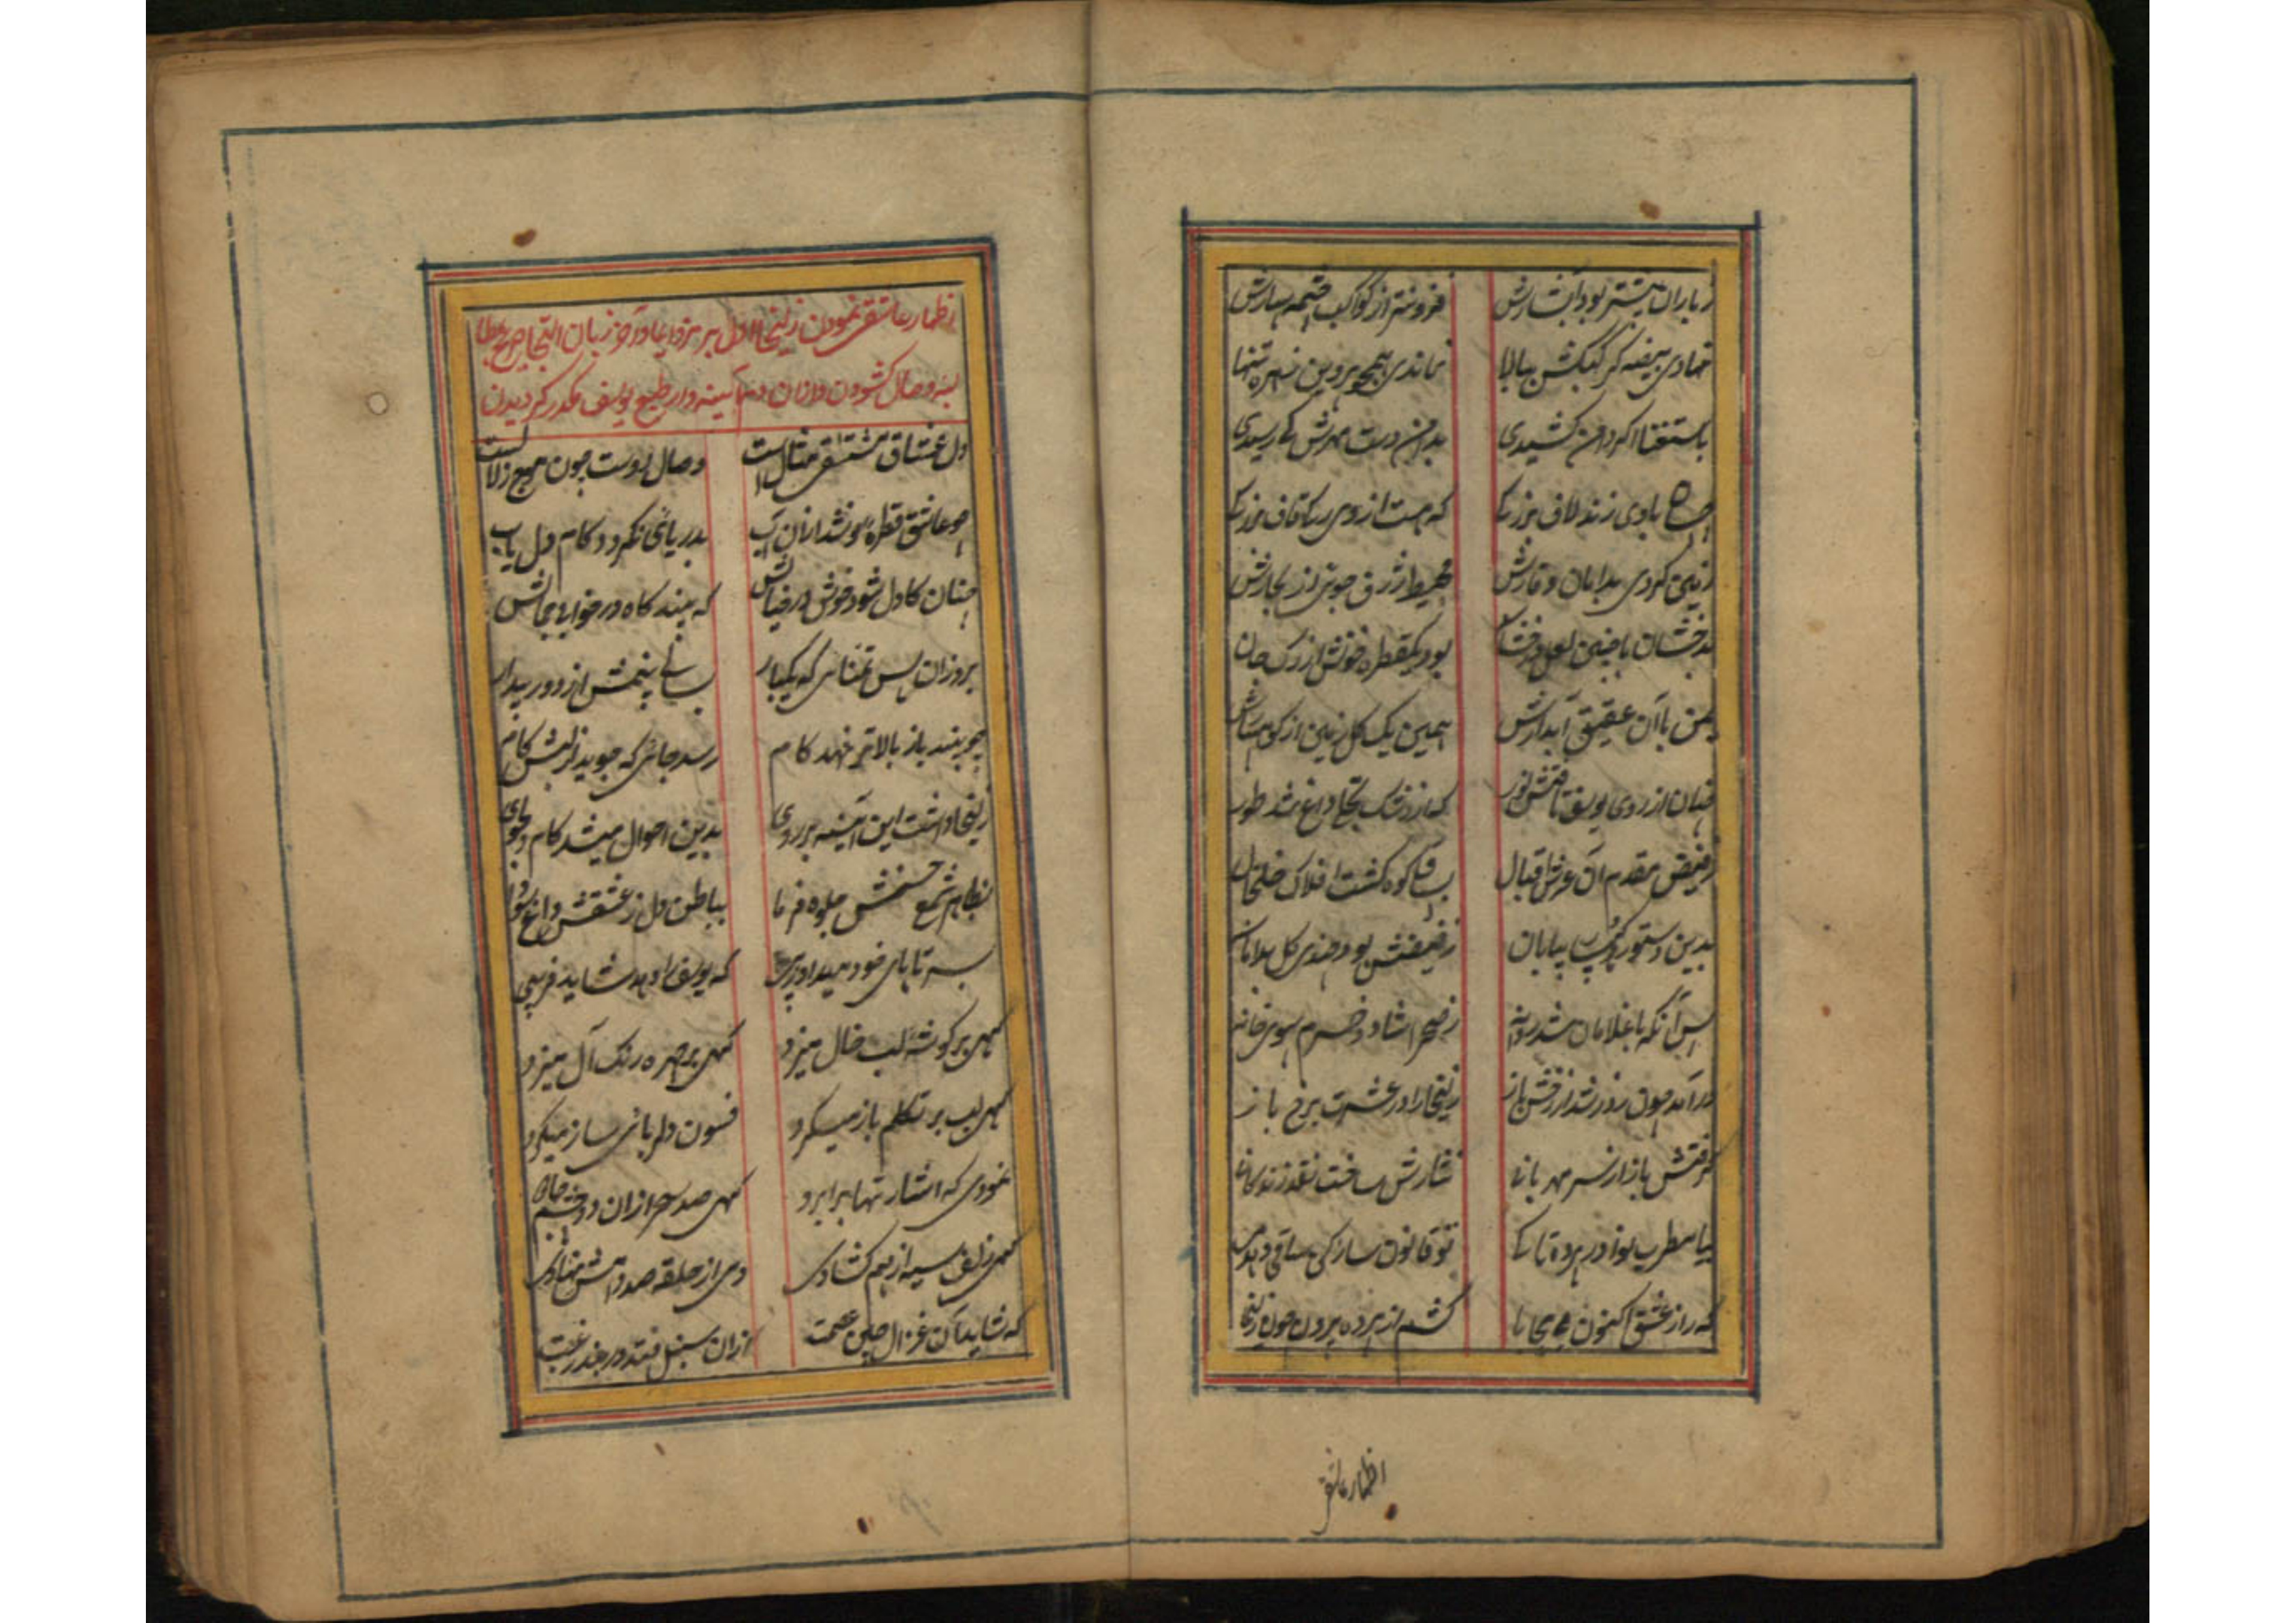 ز باران بیشتر بود آبشارش فزونتر از کواکب چشمه سارش
نهادی بیضه کر کبکش ببالا نماندی همچو پروین تنها
باستغنا اکر دامن کشیدی بدامن دست مهرش کی رسیدی
با وی زند لاف بزرکی که هست از وی قاف بزرکی
کردی بدامان وقارش محیط ژرف جوئی از بحارش
بدخشان با چنین لعل بود یکقطره خونش از رک جان
یمن با آن عقیق آبدارش همین یک کل زمین از کوهسارش
چنان از روی یوسف تافتش نور که از رشک تجلی داغ شد طور
ز فیض مقدم آن عرش اقبال بساق کوه کشت افلاک خلخال
بدین دستور بیابان ز فیضش بود چندی کل بدامان
پس آنکه با غلامان شد روانه ز صحرا شاد و خرم سوی خانه
درآمد چون ز در شد از رخش باز زلیخا را در عشرت برخ باز
کرفتش باز از سر مهربانی نثارش ساخت نقد زندکانی
بیا مطرب نوا در پرده تا کی تو قانون ساز کن ساقی
که راز عشق اکنون بی محابا کشم از پرده بیرون چون زلیخا
اظهار عاشقی
اظهار عاشقی نمودن زلیخا اول برمز و ایما و آخر زبان التجا
وصال کشودن و از آن دم آیینه وار طبع یوسف مکدر کردیدن
دل عشاق مشتاق وصال است وصال دوست چون موج زلال است
چو عاشق قطره نوشد از آن آب بدریائی نکردد کام دل یاب
چنان کاول شود خوش در خیالش که بیند کاه در خوابی جمالش
بروز آن پس تمنا که یکبار ببیند از دور بیدار
چو بیند باز بالاتر نهد کام رسد جائی که جوید از لبش کام
زلیخا داشت این آیینه بر روی بدین احوال میشد کام دلجوی
بظاهر شمع حسنش جلوه فرما بباطن دل ز عشقش داغ سودا
سر تا پای خود میداد زیبی که یوسف را دهد شاید فریبی
کهی بر کوشه لب خال میزد کهی بر چهره رنک آل میزد
کهی لب بر تکلم باز میکرد فسون دلربائی ساز میکرد
نمودی که اشارتها بابرو کهی صد سحر از آن دو چشم جادو
کهی زلف سیه از هم کشادی وی از حلقه صد دامش نهادی
که شاید آن غزال چین عصمت از آن سنبل فتد در بند رغبت